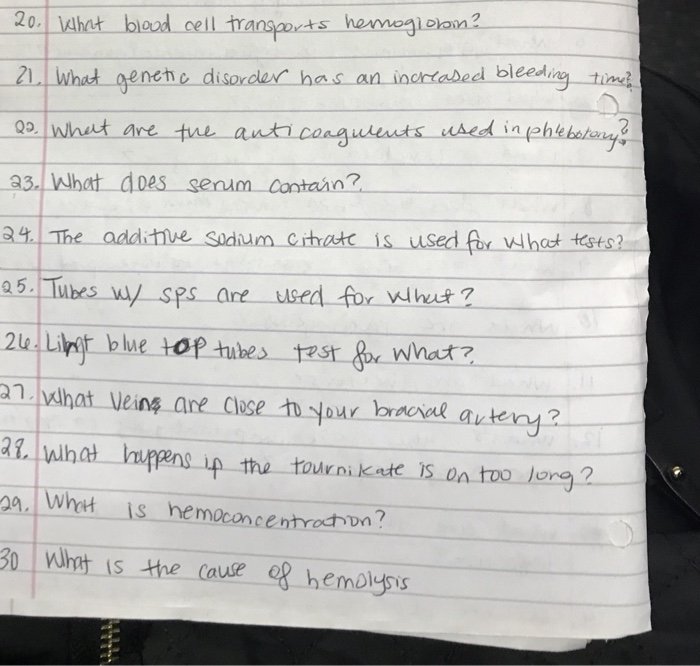 20. What blood cell transports hemoglobin?
21. What genetic disorder has an increased bleeding time?
22. What are the anticoagulents used in phlebotomy?
23. What does serum contain?
24. The additive sodium citrate is used for what tests?
25. Tubes w/ sps are used for what?
26. Lihgt blue top tubes test for what?
27. What veins are close to your bracial artery?
28. What happens if the tournikate is on too long?
29. What is hemoconcentration?
30 What is the cause of hemolysis